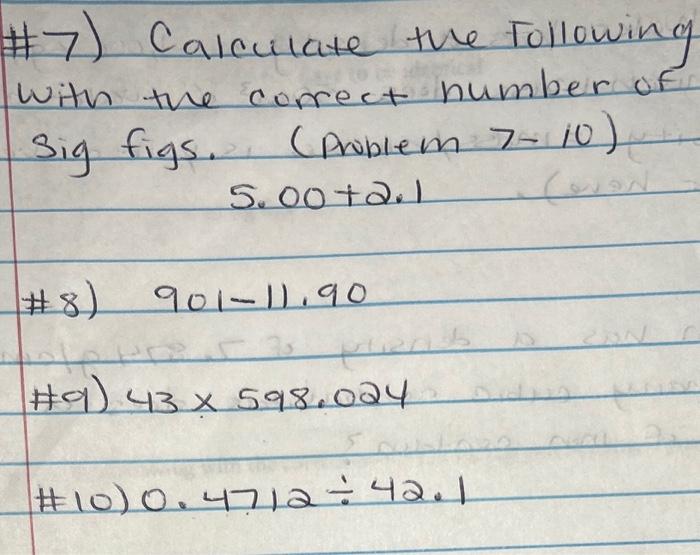 #7) Calculate the following
with the correct number of
sig figs. (Problem 7-10)
5.00+2.1
#8) 901-11.90
#9) 43 x 598.024
#10) 0.4712 ÷ 42.1